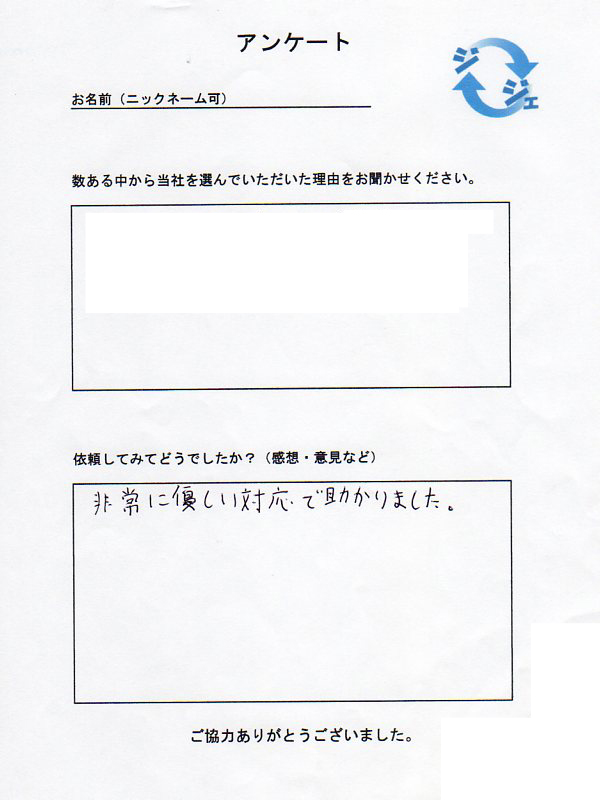 アンケート
ジ
ジェ
お名前（ニックネーム可）
数ある中から当社を選んでいただいた理由をお聞かせください。
依頼してみてどうでしたか？（感想・意見など）
非常に優しい対応で助かりました。
ご協力ありがとうございました。